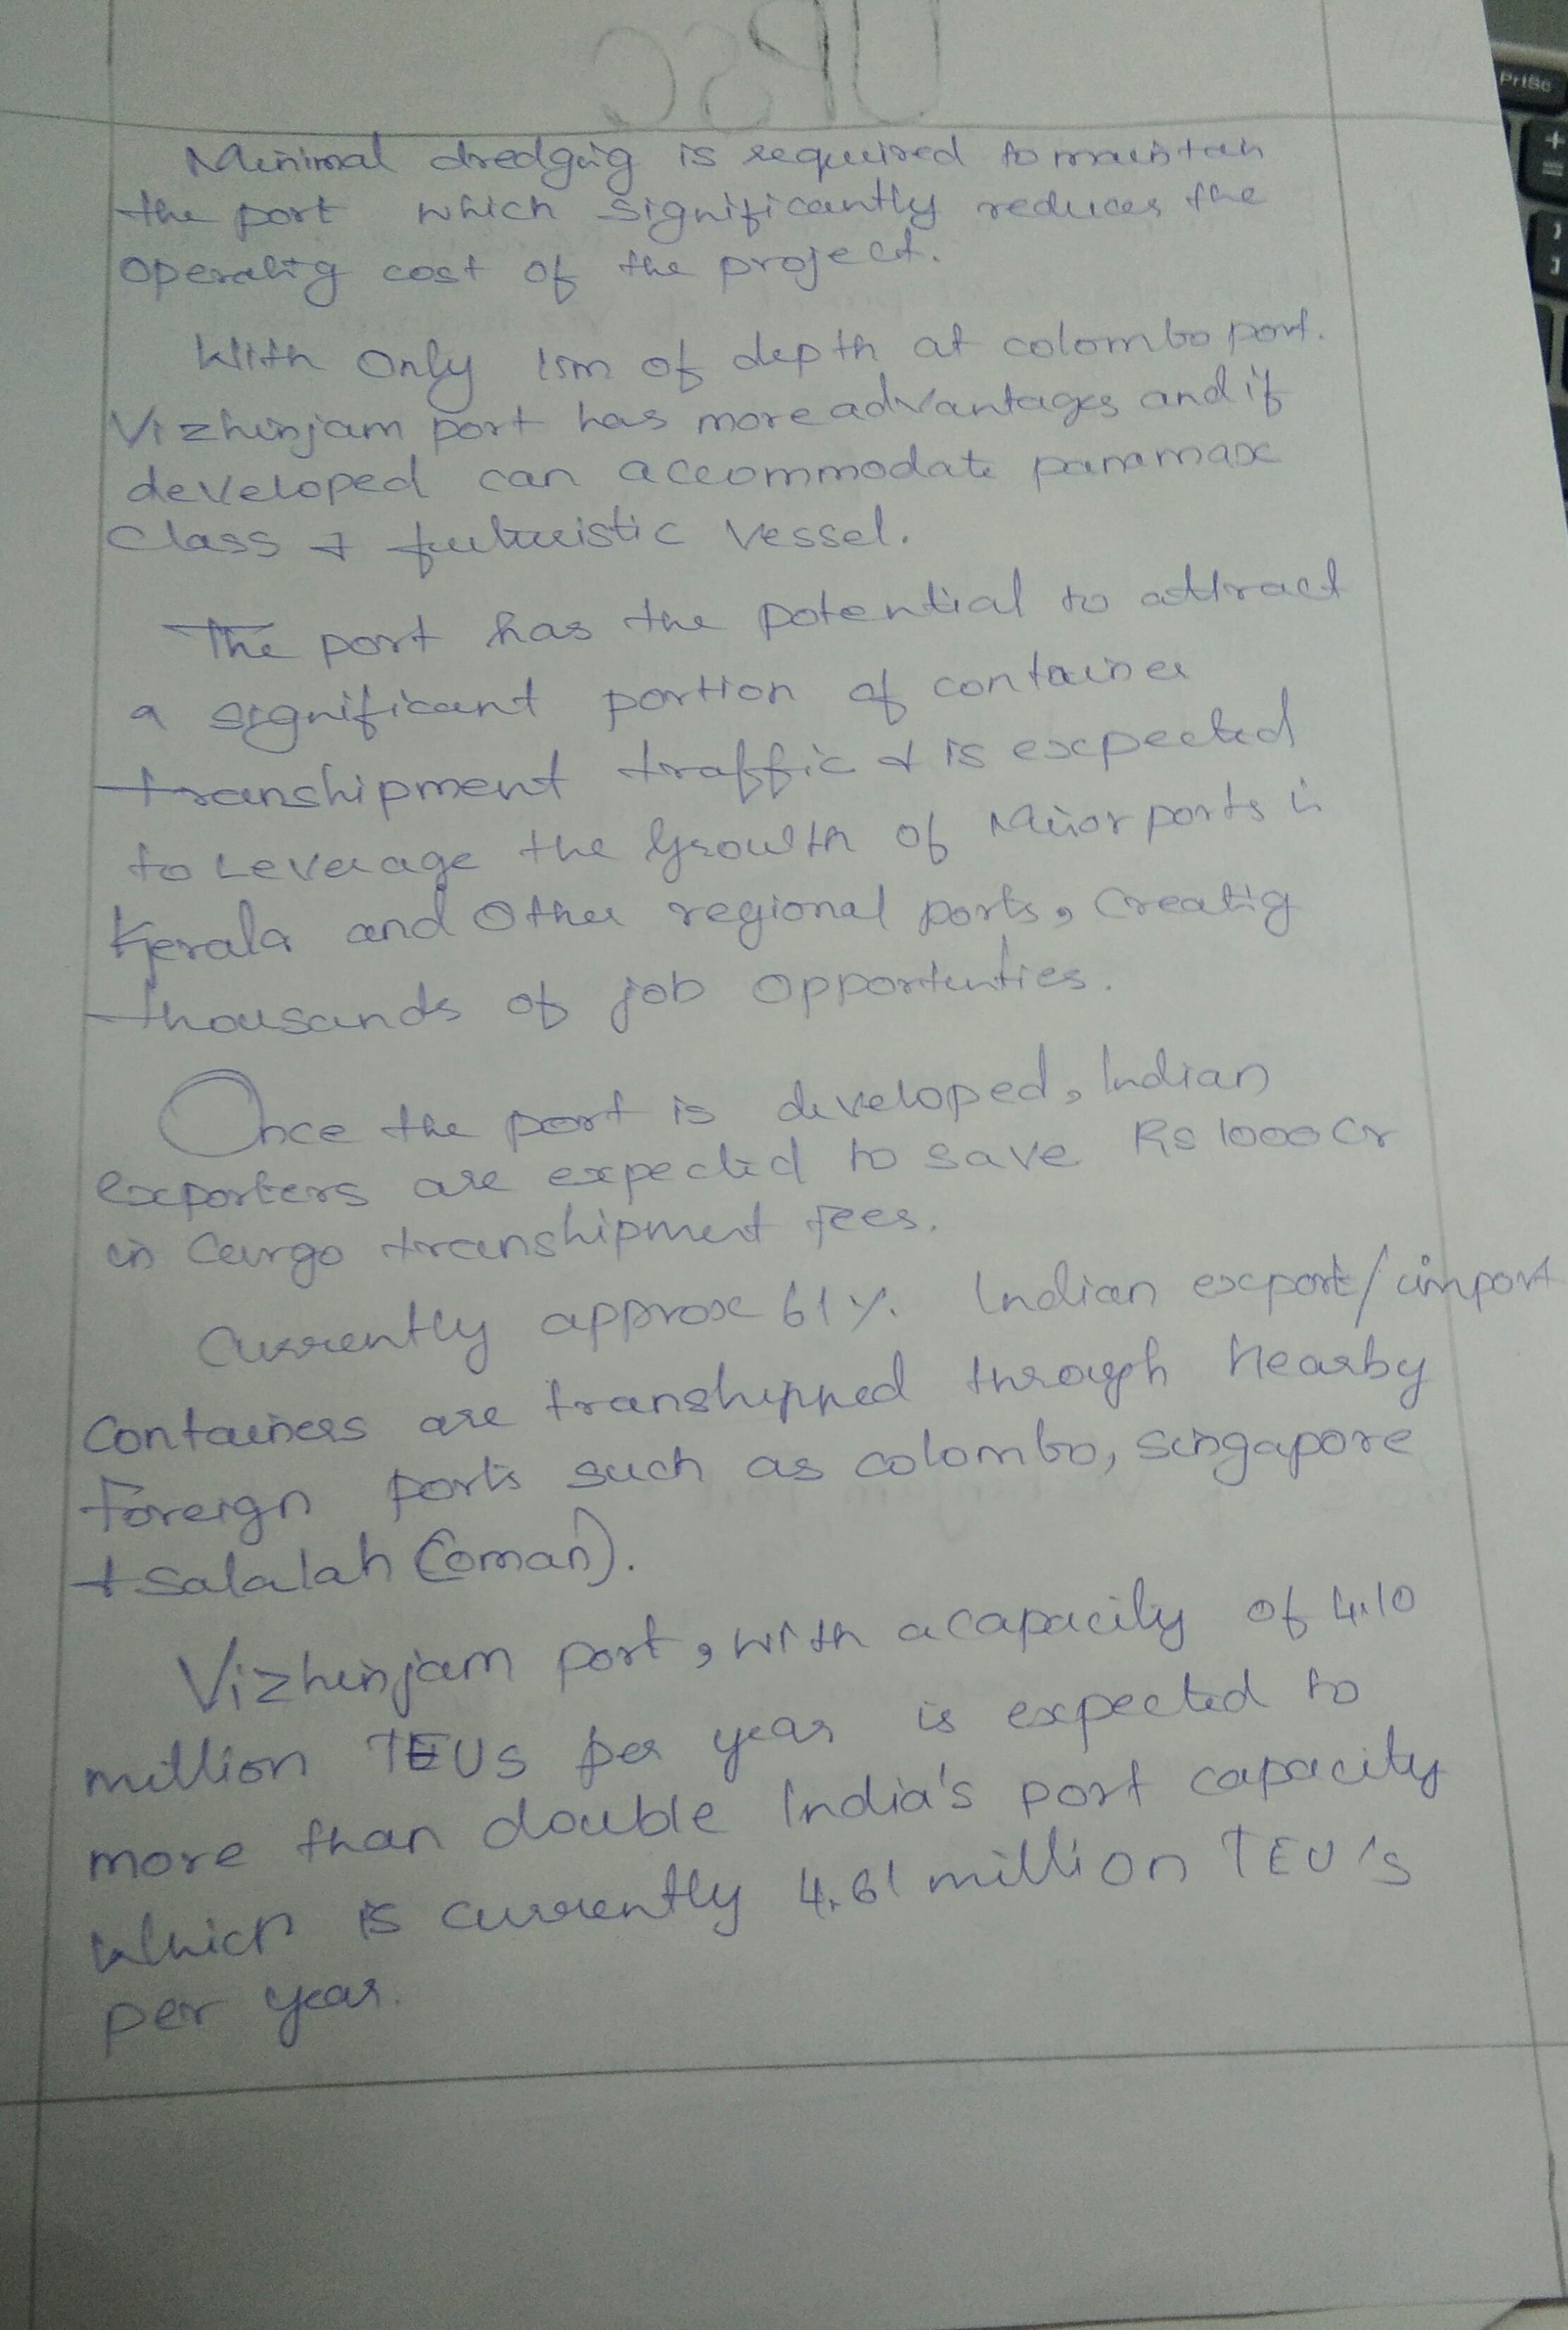 UPSC
Minimal dredging is required to maintain
the port which significantly reduces the
operating cost of the project.
With only 15m of depth at colombo port.
Vizhinjam port has more advantages and if
developed can accommodate panamax
class & futuristic vessel.
The port has the potential to attract
a significant portion of container
transhipment traffic & is expected
to Leverage the Growth of Minor ports in
Kerala and Other regional ports, creating
thousands of job opportunties.
Once the port is developed, Indian
exporters are expected to save Rs 1000 Cr
in Cargo transhipment fees.
Currently approx 61%. Indian export/import
Containers are transhipped through nearby
Foreign ports such as colombo, singapore
& Salalah (oman).
Vizhinjam port, with a capacity of 4.10
million TEUs per year is expected to
more than double India's port capacity
which is currently 4.61 million TEU's
per year.
PrtSc
+
=
}
]